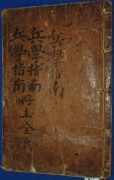 兵學指南
兵學指南
兵學指南冊主全氏